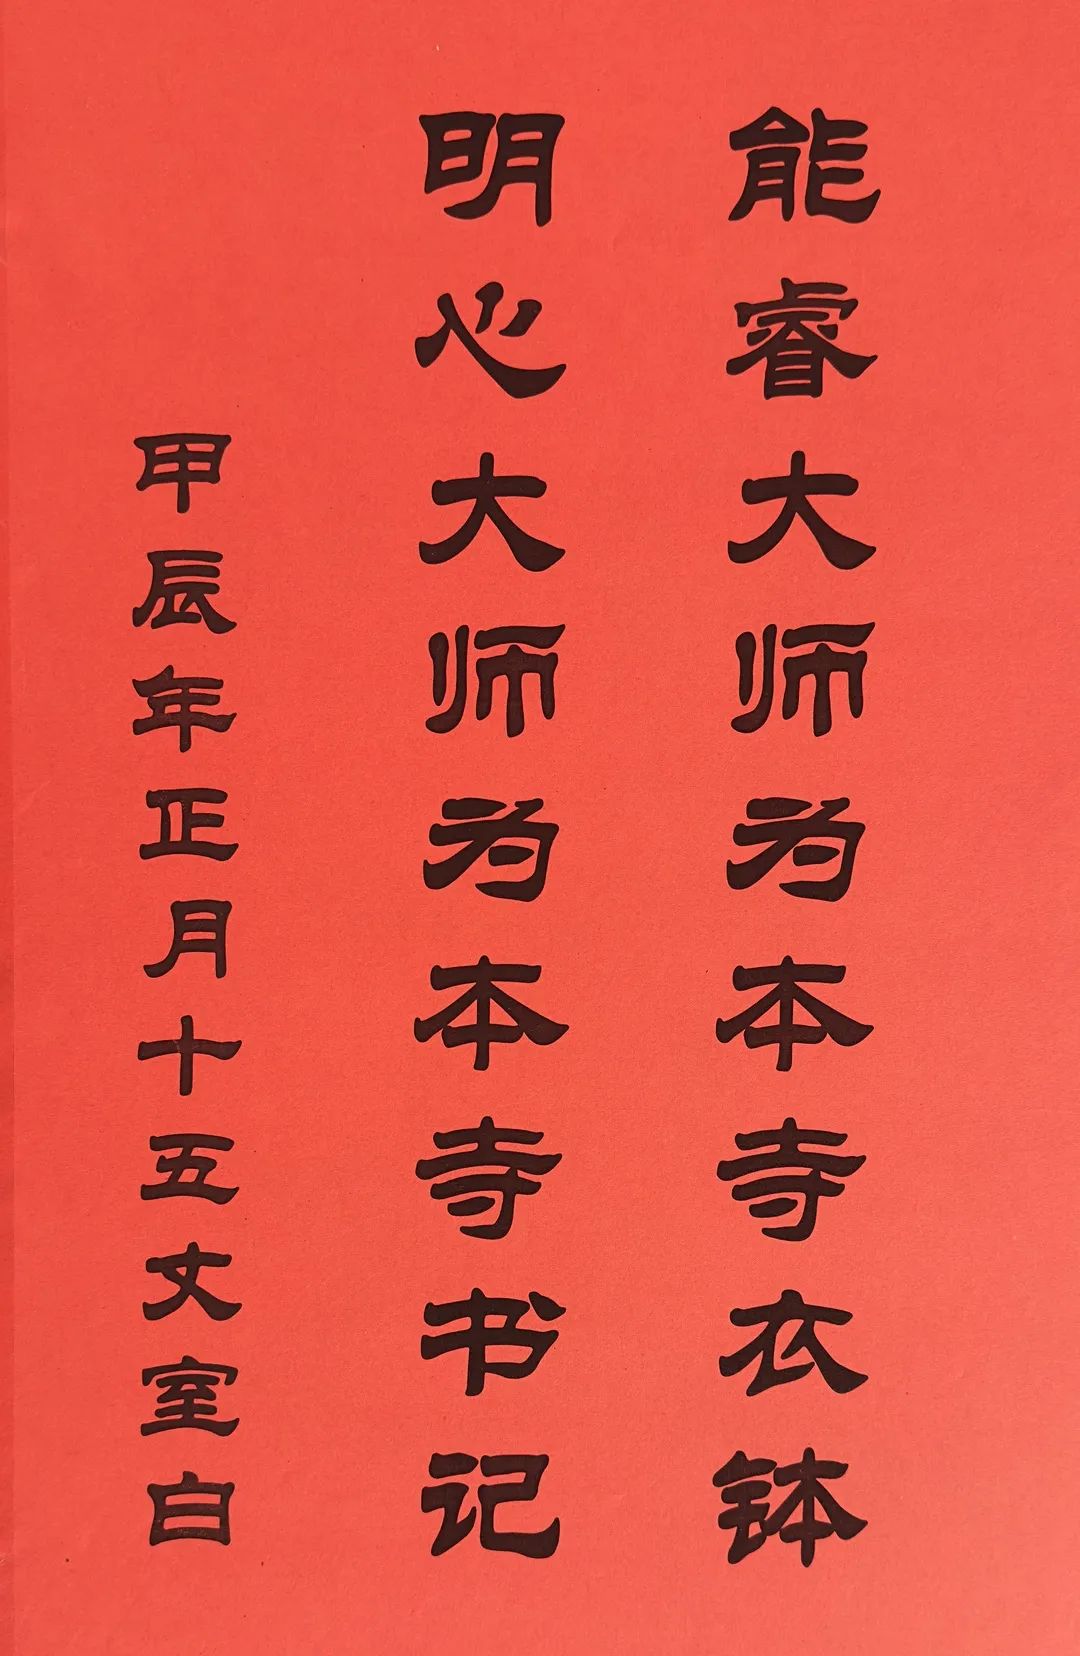 能睿大师为本寺衣钵
明心大师为本寺书记
甲辰年正月十五文室白